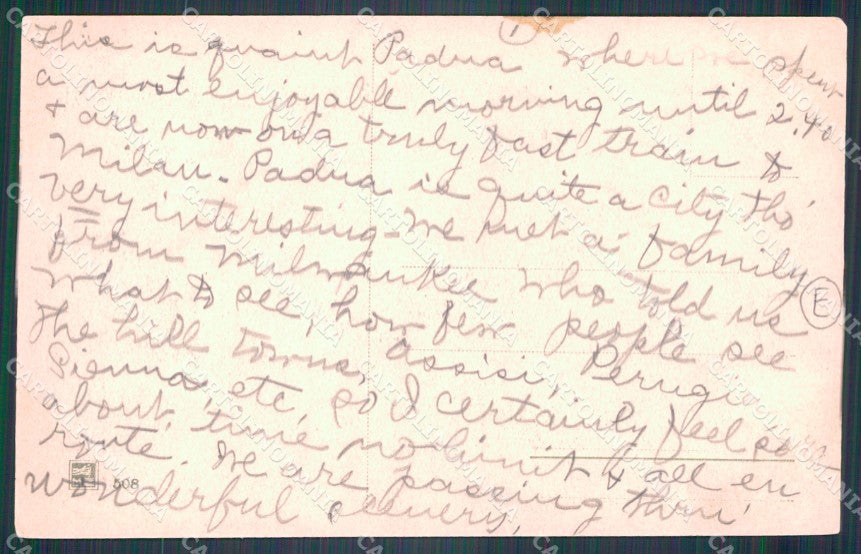 1
This is quaint Padua where we spent
a most enjoyable morning until 2.40
& are now on a truly fast train to
Milan - Padua is quite a city tho'
very interesting - We met a family
from Milwaukee who told us
what to see, how few people see
the hill towns, Assisi, Perugia
Sienna, etc, so I certainly feel
about time no limit & all en
route We are passing thru'
wonderful scenery,
E
508
CARTOLINOMANIA